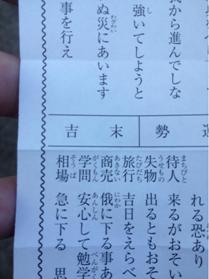 から進んでしな
強いてしようと
ぬ災にあいます
事を行え
運勢
末吉
れる恐あり
待人 来るがおそい
失物 出るともおそ
旅行 吉日をえらべ
商売 俄に下る事あ
学問 安心して勉学
相場 急に下る 思